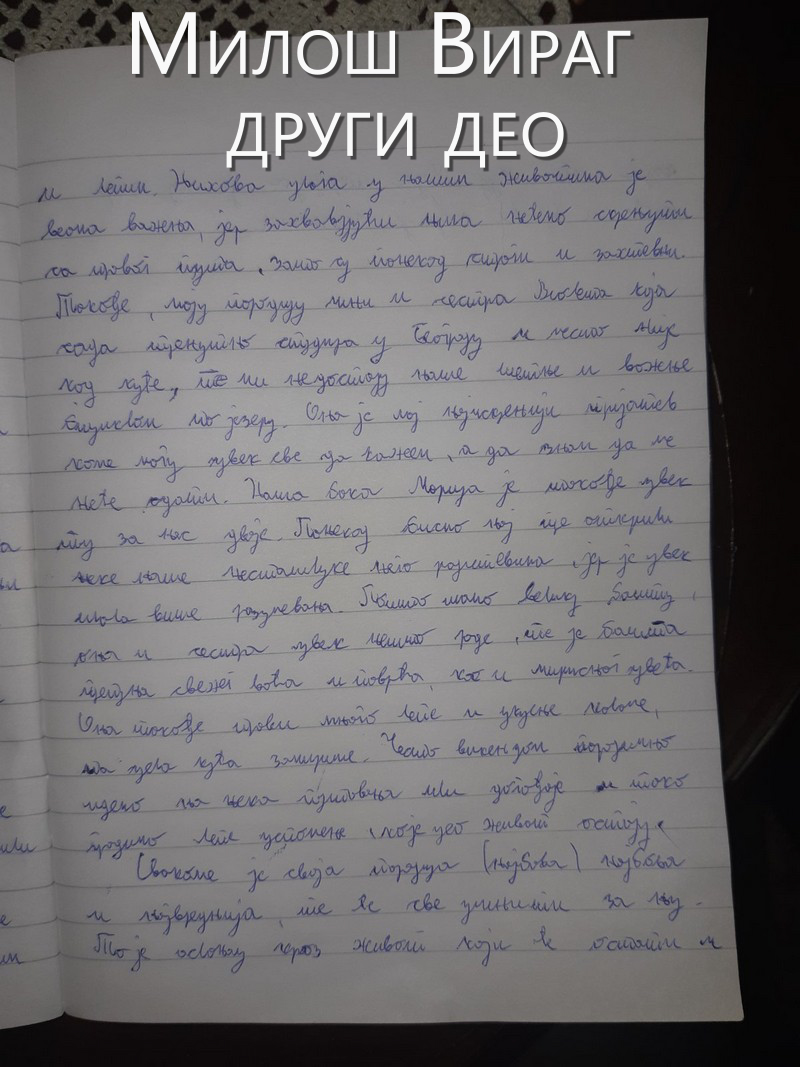 Милош Вираг
други део
и лепши. Њихова улога у нашим животима је
веома важна, јер захваљујући њима нећемо скренути
са правог пута, зато су понекад строги и захтевни.
Такође, моју породицу чини и сестра Виолета која
сада тренутно студира у Београду и често није
код куће, те ми недостају наше шетње и вожње
бициклом по језеру. Она је мој најискренији пријатељ
коме могу увек све да кажем, а да знам да ме
неће одати. Наша бака Марија је такође увек
ту за нас двоје. Понекад бисмо њој пре открили
неке наше несташлуке него родитељима, јер је увек
имала више разумевања. Пошто имамо велику башту,
она и сестра увек нешто раде, те је башта
препуна свежег воћа и поврћа, као и мирисног цвећа.
Она такође прави много лепе и укусне колаче,
па цела кућа замирише. Често викендом породично
идемо на нека путовања или догађаје и тако
градимо лепе успомене, које цео живот остају.
Свакоме је своја породица (најбоља) најбоља
и највреднија, те ће све учинити за њу.
То је ослонац кроз живот који ће остати и